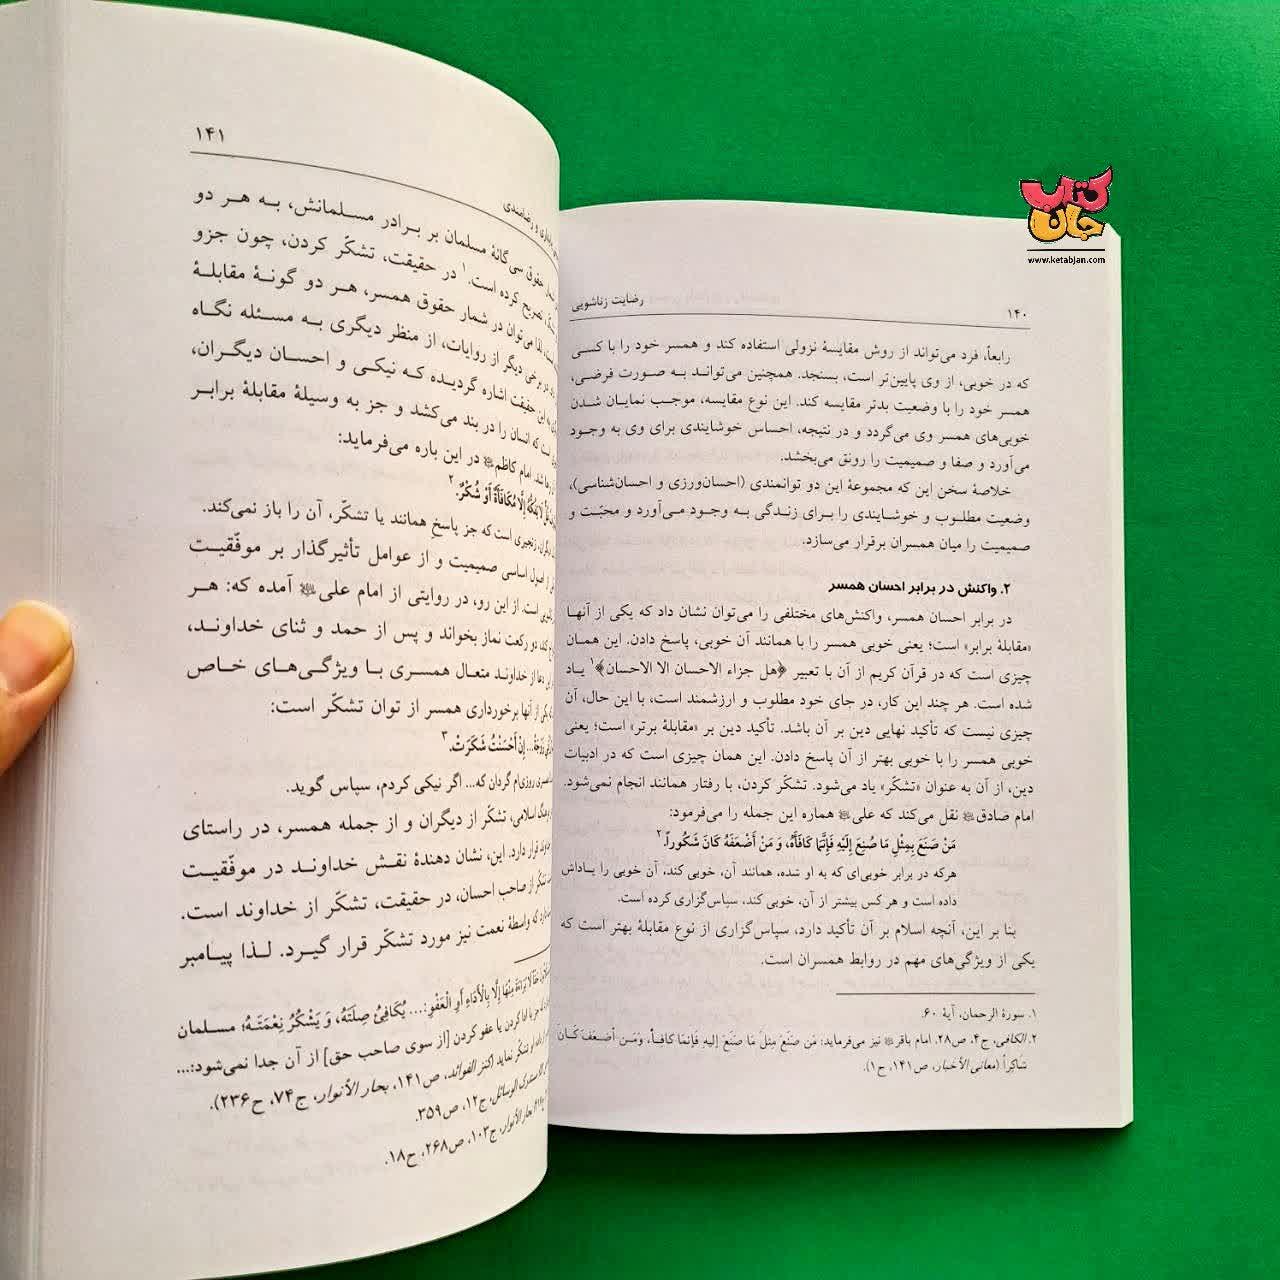 کتاب جان
www.ketabjan.com
۱۴۰
رضایت زناشویی
رابعاً، فرد می‌تواند از روش مقایسهٔ نزولی استفاده کند و همسر خود را با کسی
که در خوبی، از وی پایین‌تر است، بسنجد. همچنین می‌تواند به صورت فرضی،
همسر خود را با وضعیت بدتر مقایسه کند. این نوع مقایسه، موجب نمایان شدن
خوبی‌های همسر وی می‌گردد و در نتیجه، احساس خوشایندی برای وی به وجود
می‌آورد و صفا و صمیمیت را رونق می‌بخشد.
خلاصهٔ سخن این که مجموعهٔ این دو توانمندی (احسان‌ورزی و احسان‌شناسی)،
وضعیت مطلوب و خوشایندی را برای زندگی به وجود می‌آورد و محبّت و
صمیمیت را میان همسران برقرار می‌سازد.
۲. واکنش در برابر احسان همسر
در برابر احسان همسر، واکنش‌های مختلفی را می‌توان نشان داد که یکی از آنها
«مقابلهٔ برابر» است؛ یعنی خوبی همسر را با همانند آن خوبی، پاسخ دادن. این همان
چیزی است که در قرآن کریم از آن با تعبیر ﴿هل جزاء الاحسان الا الاحسان﴾۱ یاد
شده است. هر چند این کار، در جای خود مطلوب و ارزشمند است، با این حال، آن
چیزی نیست که تأکید نهایی دین بر آن باشد. تأکید دین بر «مقابلهٔ برتر» است؛ یعنی
خوبی همسر را با خوبی بهتر از آن پاسخ دادن. این همان چیزی است که در ادبیات
دین، از آن به عنوان «تشکّر» یاد می‌شود. تشکّر کردن، با رفتار همانند انجام نمی‌شود.
امام صادق نقل می‌کند که علی هماره این جمله را می‌فرمود:
مَنْ صَنَعَ بِمِثْلِ مَا صُنِعَ إِلَيْهِ فَإِنَّمَا كَافَأَهُ، وَ مَنْ أَضْعَفَهُ كَانَ شَكُوراً.۲
هرکه در برابر خوبی‌ای که به او شده، همانند آن، خوبی کند، آن خوبی را پاداش
داده است و هر کس بیشتر از آن، خوبی کند، سپاس‌گزاری کرده است.
بنا بر این، آنچه اسلام بر آن تأکید دارد، سپاس‌گزاری از نوع مقابلهٔ بهتر است که
یکی از ویژگی‌های مهم در روابط همسران است.
۱. سورهٔ الرحمان، آیهٔ ۶۰.
۲. الکافی، ج۴، ص۲۸. امام باقر نیز می‌فرماید: مَن صَنَعَ مِثلَ ما صُنِعَ إلیهِ فَإنما کافأ، وَمَن أضعَفَ کَانَ
شاکِراً (معانی الأخبار، ص۱۴۱، ح۱).
۱۴۱
و رضامندی
شمار حقوق سی‌گانهٔ مسلمان بر برادر مسلمانش، به هر دو
تصریح کرده است.۱ در حقیقت، تشکّر کردن، چون جزو
لذا می‌توان در شمار حقوق همسر، هر دو گونهٔ مقابلهٔ
در برخی دیگر از روایات، از منظر دیگری به مسئله نگاه
به این حقیقت اشاره گردیده که نیکی و احسان دیگران،
است که انسان را در بند می‌کشد و جز به وسیلهٔ مقابلهٔ برابر
رها شد. امام کاظم در این باره می‌فرماید:
لَا يَفُكُّهُ إِلَّا مُكَافَأَةٌ أَوْ شُكْرٌ.۲
دیگران، زنجیری است که جز پاسخِ همانند یا تشکّر، آن را باز نمی‌کند.
از اصول اساسی صمیمیت و از عوامل تأثیرگذار بر موفّقیت
است. از این رو، در روایتی از امام علی آمده که: هر
کند، دو رکعت نماز بخواند و پس از حمد و ثنای خداوند،
دعا از خداوند متعال همسری با ویژگی‌های خاص
یکی از آنها برخورداری همسر از توان تشکّر است:
زَوْجَةً... إِنْ أَحْسَنْتُ شَكَرَتْ.۳
همسری روزی‌ام گردان که... اگر نیکی کردم، سپاس گوید.
فرهنگ اسلامی، تشکّر از دیگران و از جمله همسر، در راستای
قرار دارد. این، نشان دهندهٔ نقش خداوند در موفّقیت
تشکّر از صاحب احسان، در حقیقت، تشکّر از خداوند است.
که واسطهٔ نعمت نیز مورد تشکّر قرار گیرد. لذا پیامبر
لَا بَرَاءَةَ لَهُ مِنْهَا إِلَّا بِالْأَدَاءِ أَوِ الْعَفْوِ:... يُكَافِئُ صِلَتَهُ، وَ يَشْكُرُ نِعْمَتَهُ؛ مسلمان
جز با ادا کردن یا عفو کردن [از سوی صاحب حق] از آن جدا نمی‌شود:...
تشکّر نماید (کنز الفوائد، ص۱۴۱، بحار الأنوار، ج۷۴، ح۲۳۶).
مستدرک الوسائل، ج۱۲، ص۳۵۹.
بحار الأنوار، ج۱۰۳، ص۲۶۸، ح۱۸.